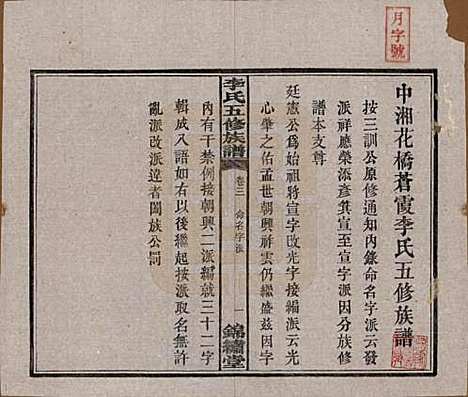 月字號
中湘花橋蒼霞李氏五修族譜
按三訓公原修通知內錄命名字派云發
派祥應榮添彥箕宣至宣字派因分族修
譜本支尊
廷憲公為始祖將宣字改光字接編派云光
心肇之佑孟世朝興祥雲仍繼盛茲因字
李氏五修族譜
卷三
命名字派
一
錦繡堂
內有干禁例接朝興二派編就三十二字
輯威八語如右以後繼起接派取名無許
亂派改派違者闔族公罰